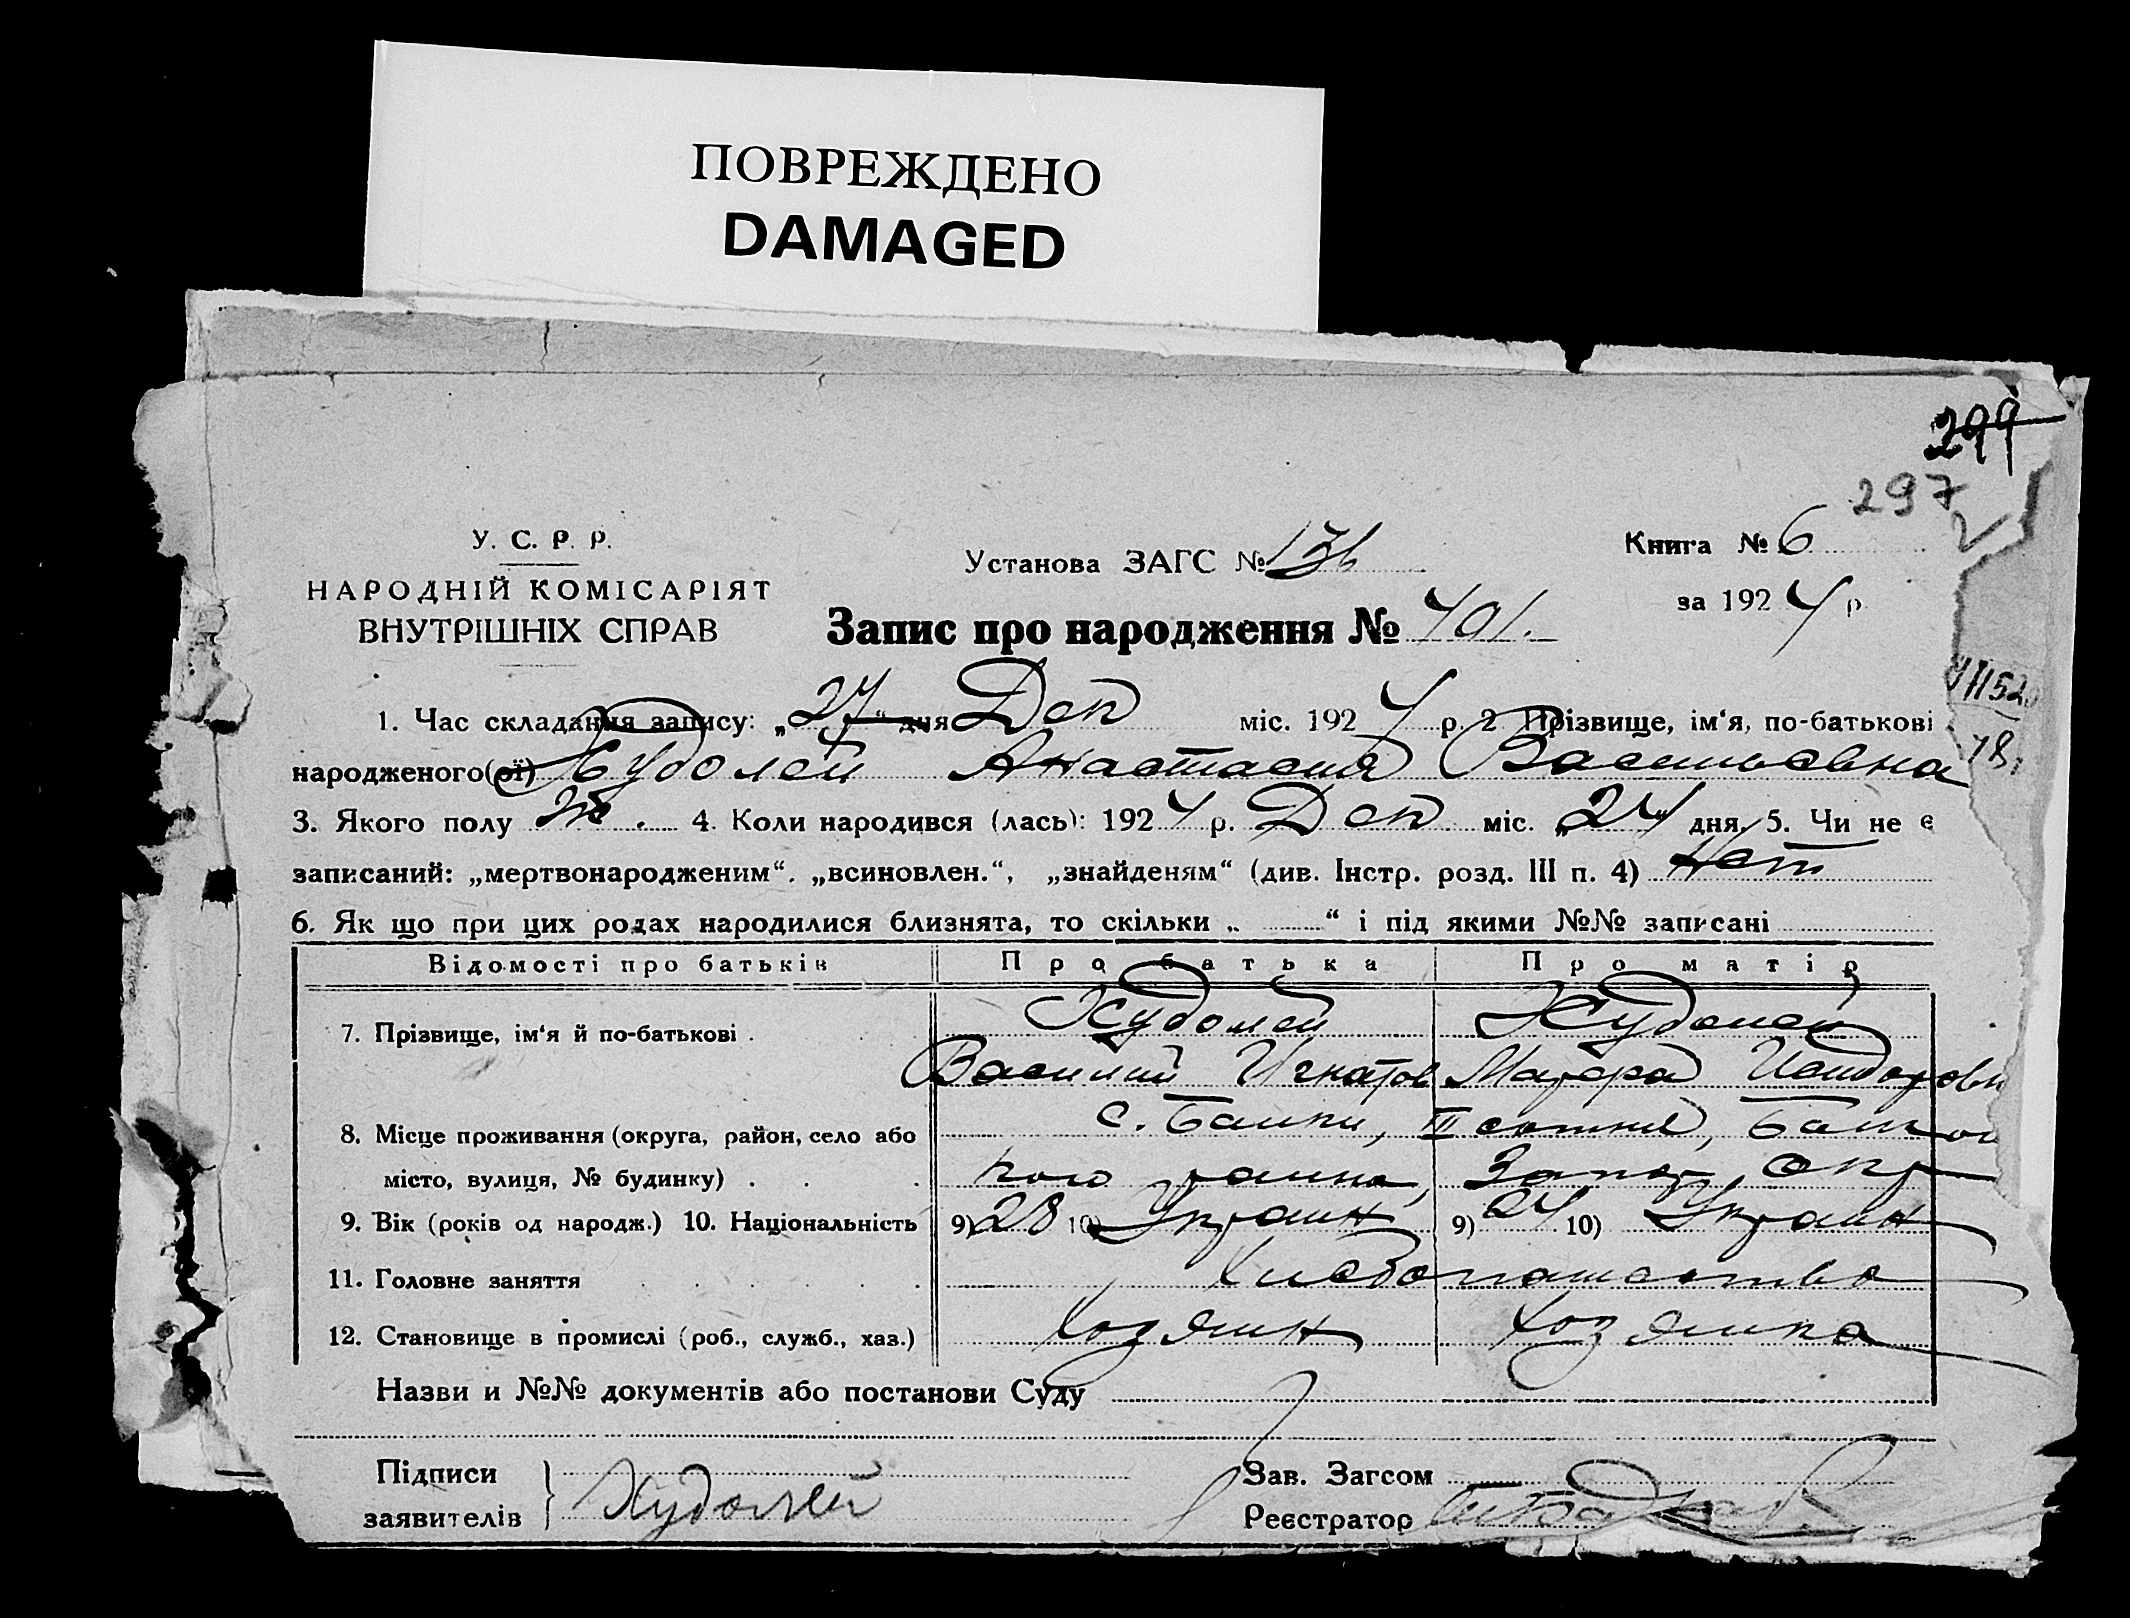 ПОВРЕЖДЕНО
DAMAGED
299
297
У. С. Р. Р.
НАРОДНІЙ КОМІСАРІЯТ
ВНУТРІШНІХ СПРАВ
Установа ЗАГС №
Книга № 6
за 1924 р
Запис про народження № 401.
1. Час складання запису: „27“ дня Дек міс. 1924 р. 2 Прізвище, ім‘я, по-батькові
народженого(ої) Худолей Анастасия Васильевна
3. Якого полу ж. 4. Коли народився (лась): 1924 р. Дек міс. „24“ дня. 5. Чи не є
записаний: „мертвонародженим“. „всиновлен.“, „знайденям“ (див. Інстр. розд. III п. 4) Нет
6. Як що при цих родах народилися близнята, то скільки „ “ і під якими №№ записані
Відомості про батьків Про батька Про матір
7. Прізвище, ім‘я й по-батькові . Худолей Худолей
Василий Игнатов Исидоровн
8. Місце проживання (округа, район, село або с. Балки, III сотня,
місто, вулиця, № будинку) . . . кого района, Запор окр
9. Вік (років од народж.) 10. Національність 9) 28 10) Украин 9) 24 10) Украин
11. Головне заняття Хлебопашество
12. Становище в промислі (роб., служб., хаз.) Хозяин Хозяика
Назви и №№ документів або постанови Суду
Підписи
заявителів
Худолей
Зав. Загсом
Реєстратор